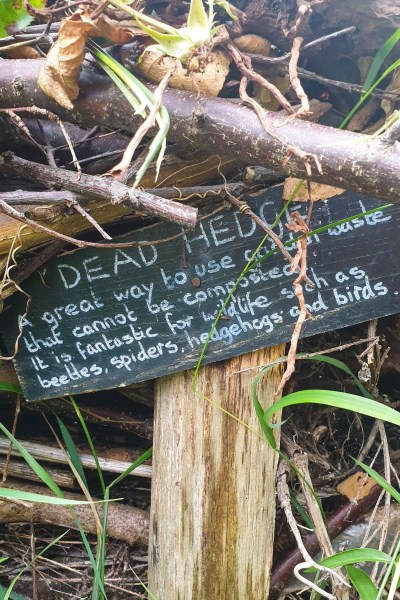 "DEAD HEDGE"
A great way to use garden waste
that cannot be composted.
It is fantastic for wildlife such as
beetles, spiders, hedgehogs and birds.